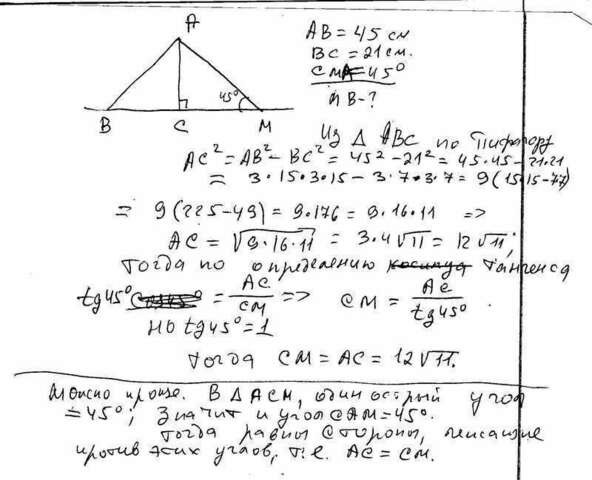 A
AB = 45 см
BC = 21 см.
CMA = 45°
МВ - ?
45°
B C M
Из Δ ABC по Пифагору
AC² = AB² - BC² = 45² - 21² = 45·45 - 21·21
= 3·15·3·15 - 3·7·3·7 = 9(15·15 - 77)
= 9(225 - 49) = 9·176 = 9·16·11 =>
AC = √9·16·11 = 3·4√11 = 12√11;
Тогда по определению косинуса тангенса
tg45° = AC/CM => CM = AC/tg45°.
Но tg45° = 1
Тогда CM = AC = 12√11.
Можно проще. В Δ ACM, один острый угол
= 45°; Значит и угол CAM = 45°.
Тогда равны стороны, лежащие
против этих углов, т.е. AC = CM.